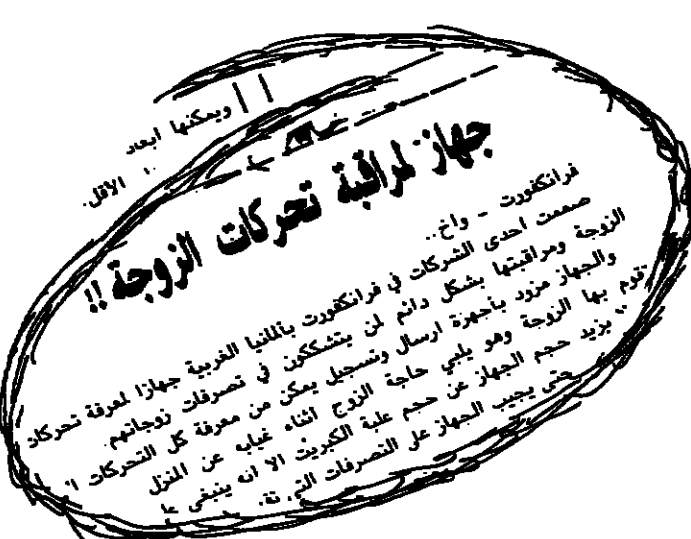 ويمكنها ابعاد
الأقل.
جهاز لمراقبة تحركات الزوجة !!
فرانكفورت - واخ..
صممت احدى الشركات في فرانكفورت بألمانيا الغربية جهازا لمعرفة تحركات
الزوجة ومراقبتها بشكل دائم لمن يتشككون في تصرفات زوجاتهم.
والجهاز مزود بأجهزة ارسال وتسجيل يمكن من معرفة كل التحركات
تقوم بها الزوجة وهو يلبي حاجة الزوج اثناء غياب عن المنزل
يزيد حجم الجهاز عن حجم علبة الكبريت الا انه ينبغي
حتى يجيب الجهاز على التصرفات